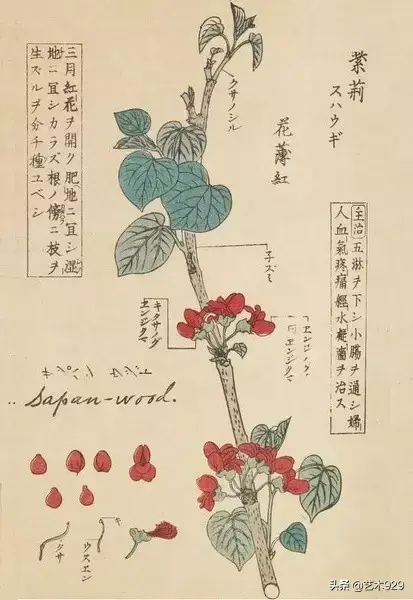 紫荊
スハウギ
花薄紅
主治 五淋ヲ下シ小膓ヲ通シ婦
人血氣疼痛經水凝濇ヲ治ス
三月紅花ヲ開ク肥地ニ宜シ湿
地ニ宜シカラズ根ノ傍ニ枝ヲ
生ズルヲ分チ種ユベシ
クサノシル
子ズミ
キクサノグ
エンジクマ
エンジノグ
同エンジクマ
Sapan-wood.
クサ
ウスエン
キ
头条 @艺术929